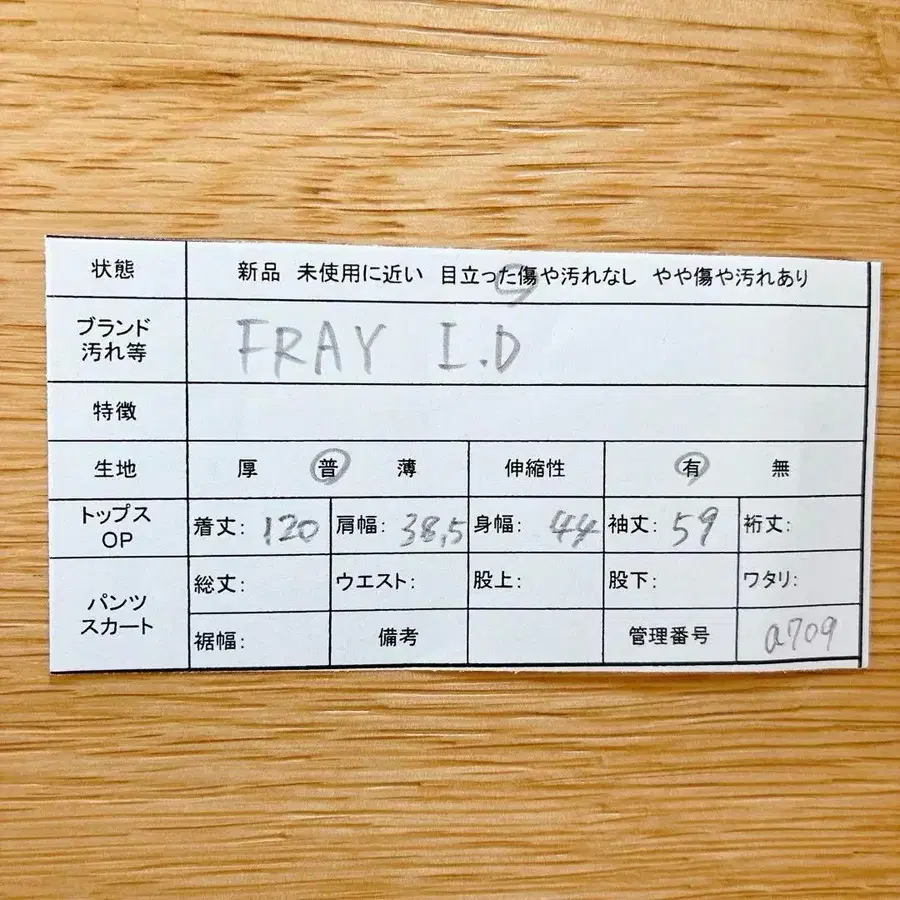 状態 新品 未使用に近い 目立った傷や汚れなし やや傷や汚れあり
ブランド
汚れ等
FRAY I.D
特徴
生地 厚 普 薄 伸縮性 有 無
トップス
OP
着丈: 120 肩幅: 38.5 身幅: 44 袖丈: 59 裄丈:
パンツ
スカート
総丈: ウエスト: 股上: 股下: ワタリ:
裾幅: 備考 管理番号 a709